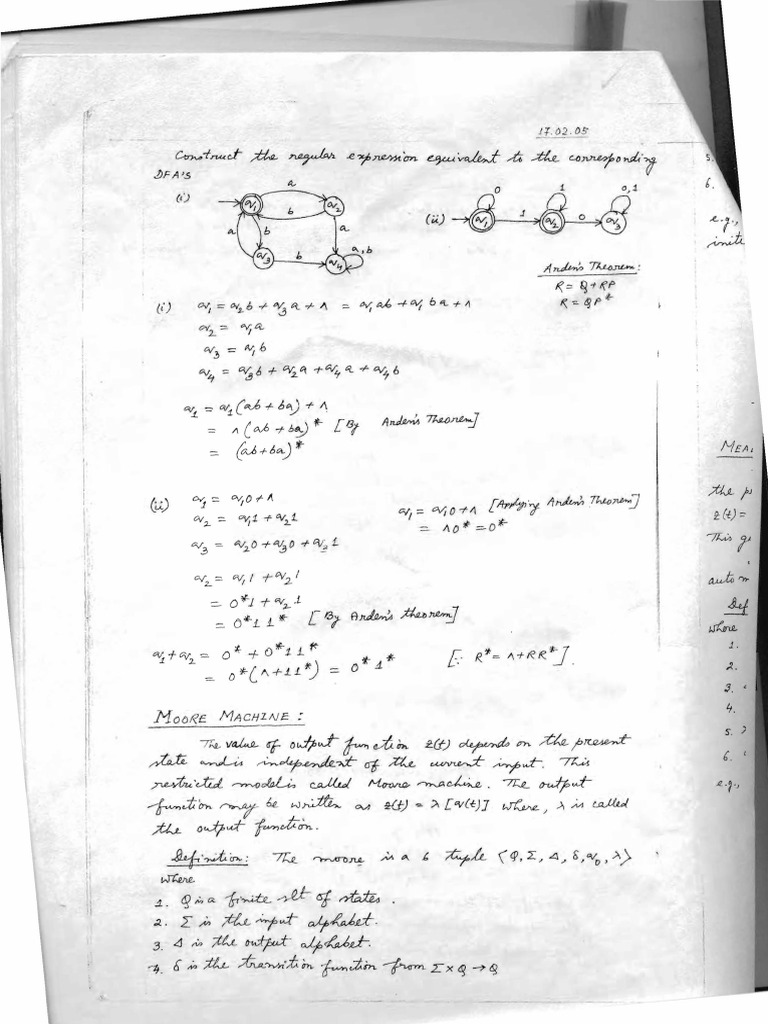 17.02.05
Construct the regular expression equivalent to the corresponding
DFA'S
(i)
a
q1
q2
b
a
b
a
q3
b
q4
a,b
(ii)
0
1
0,1
q1
1
q2
0
q3
Arden's Theorem:
R = Q + RP
R = QP*
(i) q1 = q2b + q3a + ∧ = q1ab + q1ba + ∧
q2 = q1a
q3 = q1b
q4 = q3b + q2a + q4a + q4b
q1 = q1(ab + ba) + ∧
= ∧(ab + ba)* [By Arden's Theorem]
= (ab+ba)*
(ii) q1 = q10 + ∧
q2 = q11 + q21
q3 = q20 + q30 + q31
q1 = q10 + ∧ [Applying Arden's Theorem]
= ∧0* = 0*
q2 = q11 + q21
= 0*1 + q21
= 0*11* [By Arden's theorem]
q1 + q2 = 0* + 0*11*
= 0*(∧ + 11*) = 0*1* [∵ R* = ∧ + RR*].
MOORE MACHINE:
The value of output function z(t) depends on the present
state and is independent of the current input. This
restricted model is called Moore machine. The output
function may be written as z(t) = λ[q(t)] where, λ is called
the output function.
Definition: The moore is a 6 tuple ⟨Q, Σ, Δ, δ, q0, λ⟩
where
1. Q is a finite set of states.
2. Σ is the input alphabet.
3. Δ is the output alphabet.
4. δ is the transition function from Σ x Q → Q
5.
6.
e.g.,
inite
MEA
the
z(t) =
This
autom
Def
where
1.
2.
3.
4.
5.
6.
e.g.,